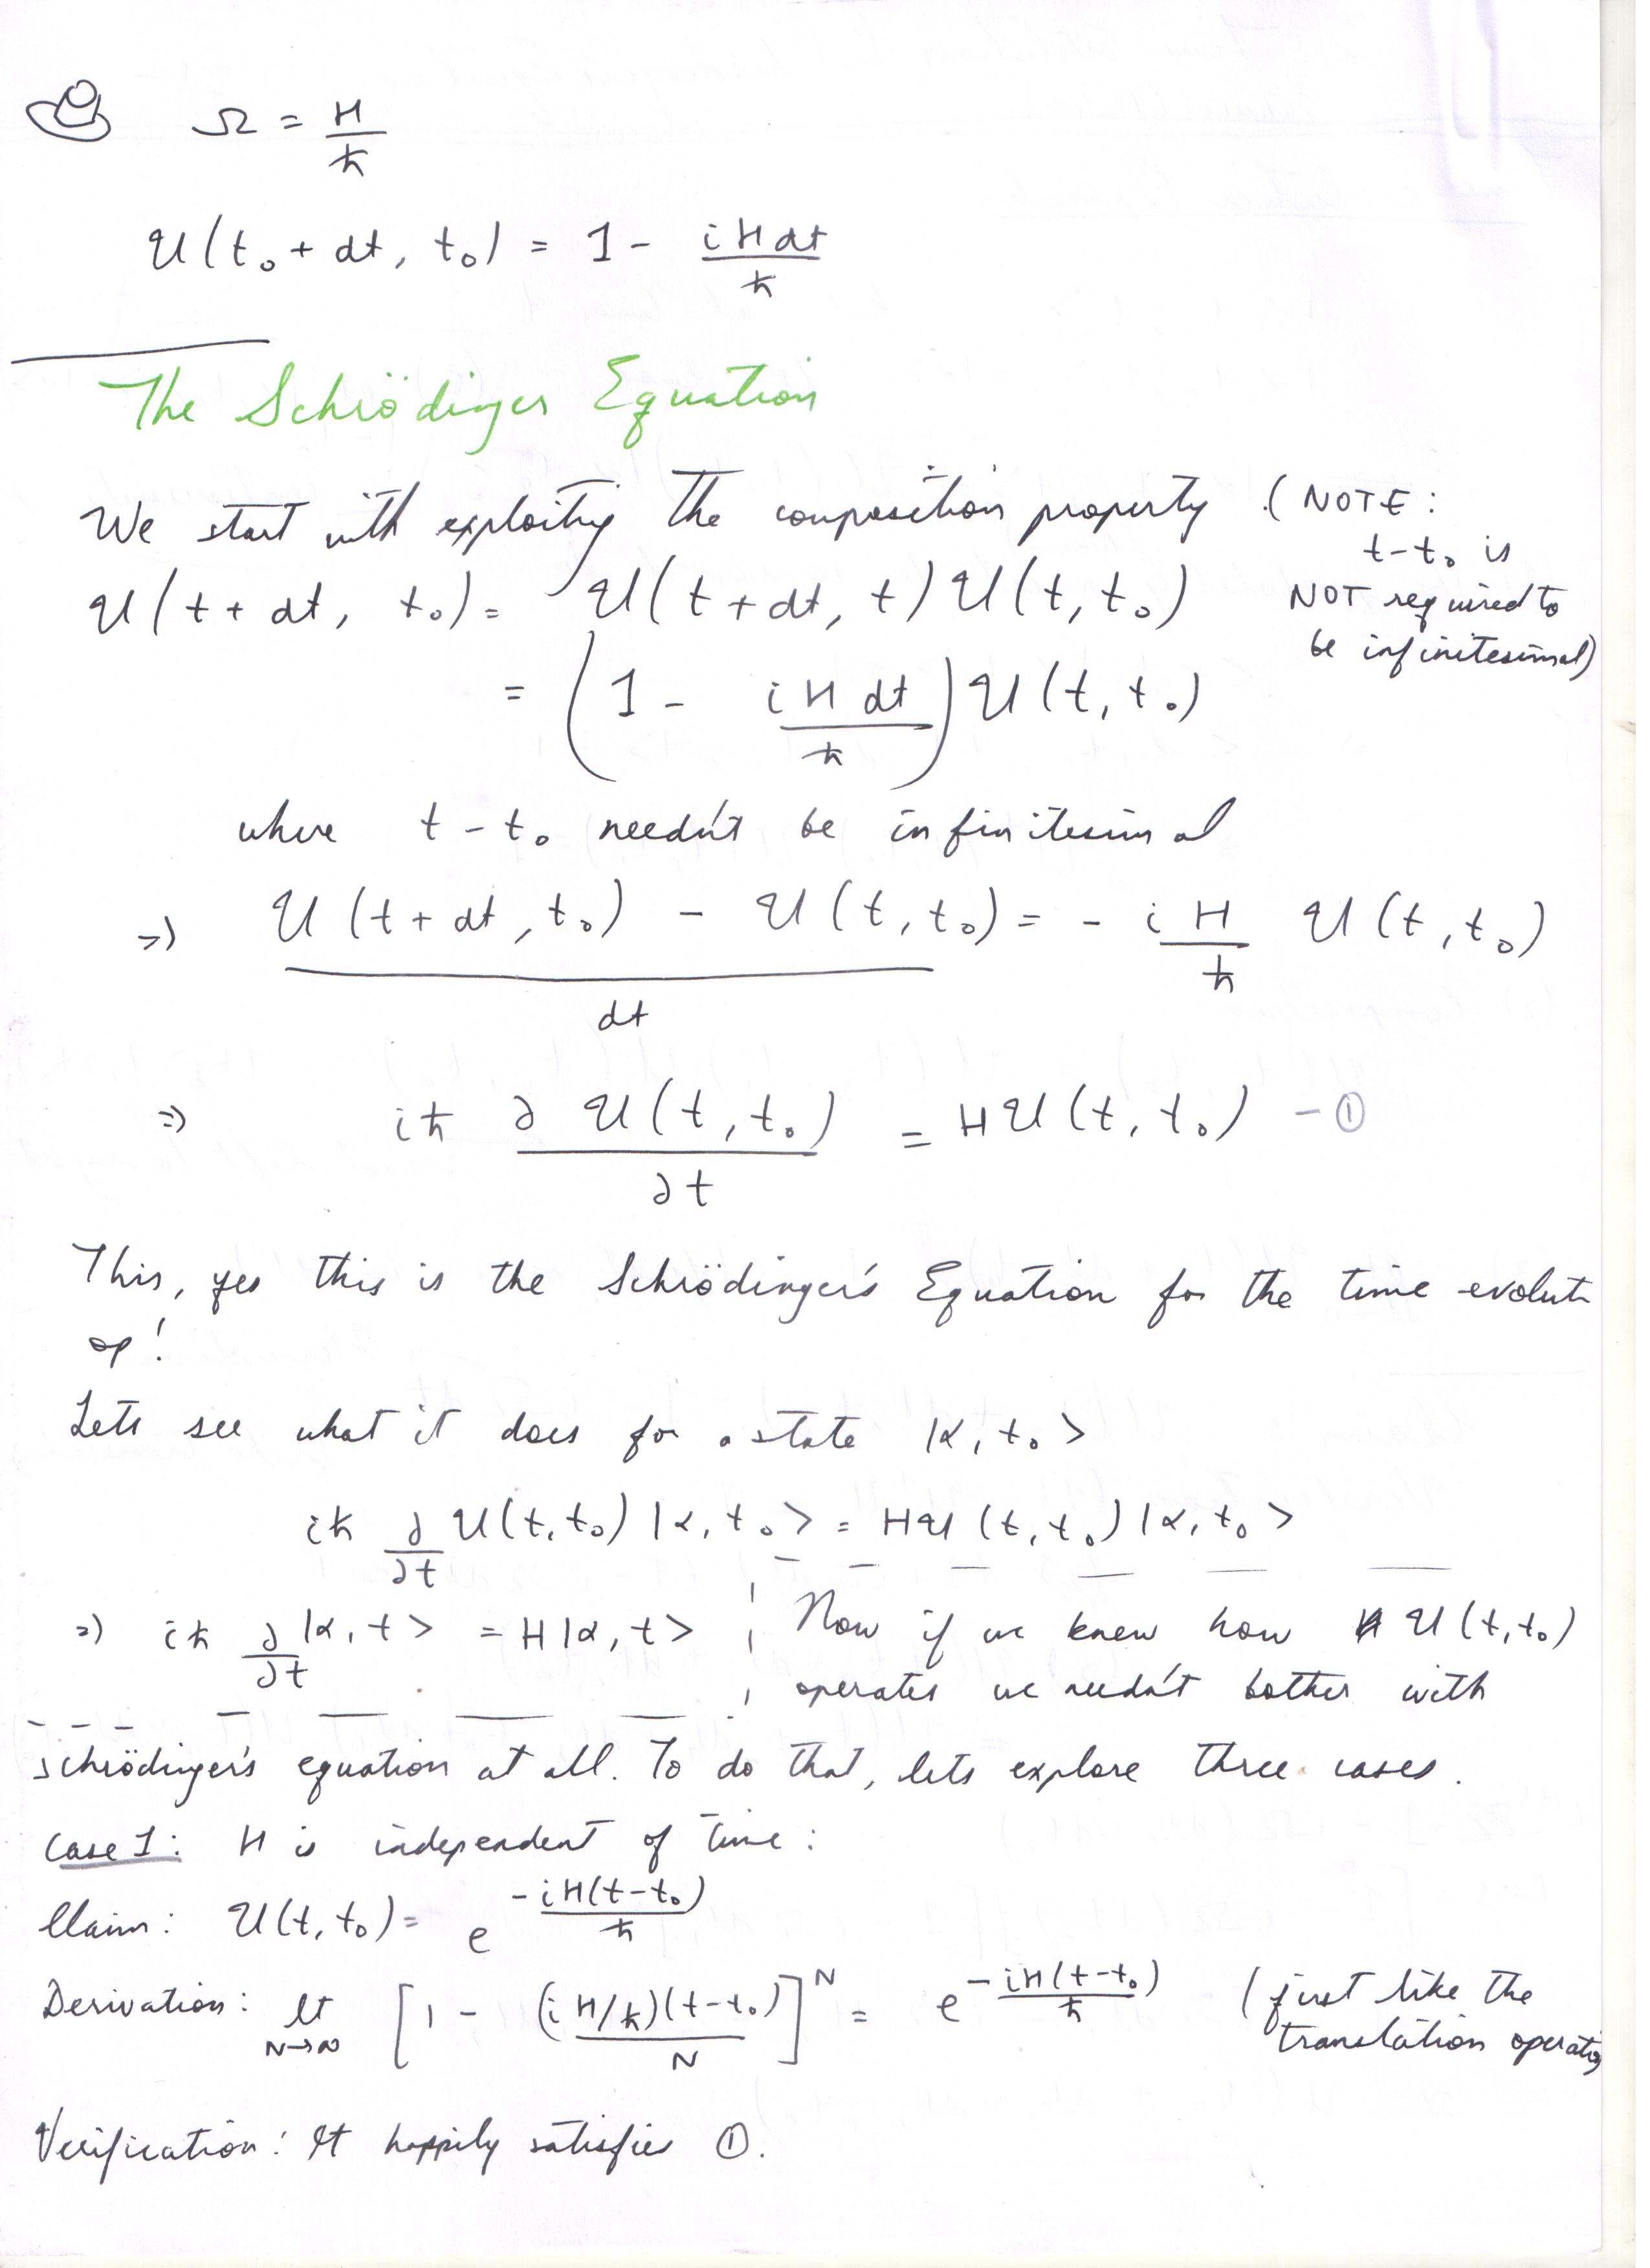 Ω = H/ħ
U(t₀ + dt, t₀) = 1 - iHdt/ħ
The Schrödinger Equation
We start with exploiting the composition property. (NOTE: t-t₀ is NOT required to be infinitesimal)
U(t + dt, t₀) = U(t + dt, t) U(t, t₀)
= (1 - iHdt/ħ) U(t, t₀)
where t - t₀ needn't be infinitesimal
⇒ (U(t + dt, t₀) - U(t, t₀))/dt = - iH/ħ U(t, t₀)
⇒ iħ ∂U(t, t₀)/∂t = HU(t, t₀) - ①
This, yes this is the Schrödinger's Equation for the time evolut
op!
Lets see what it does for a state |α, t₀>
iħ ∂/∂t U(t, t₀) |α, t₀> = HU(t, t₀) |α, t₀>
⇒ iħ ∂/∂t |α, t> = H|α, t>
Now if we knew how U(t, t₀)
operates we needn't bother with
schrödinger's equation at all. To do that, lets explore three cases.
Case 1: H is independent of time:
Claim: U(t, t₀) = e^(-iH(t-t₀)/ħ)
Derivation: lt N→∞ [1 - (iH/ħ)(t-t₀)/N]^N = e^(-iH(t-t₀)/ħ) (just like the
translation operator
Verification: It happily satisfies ①.